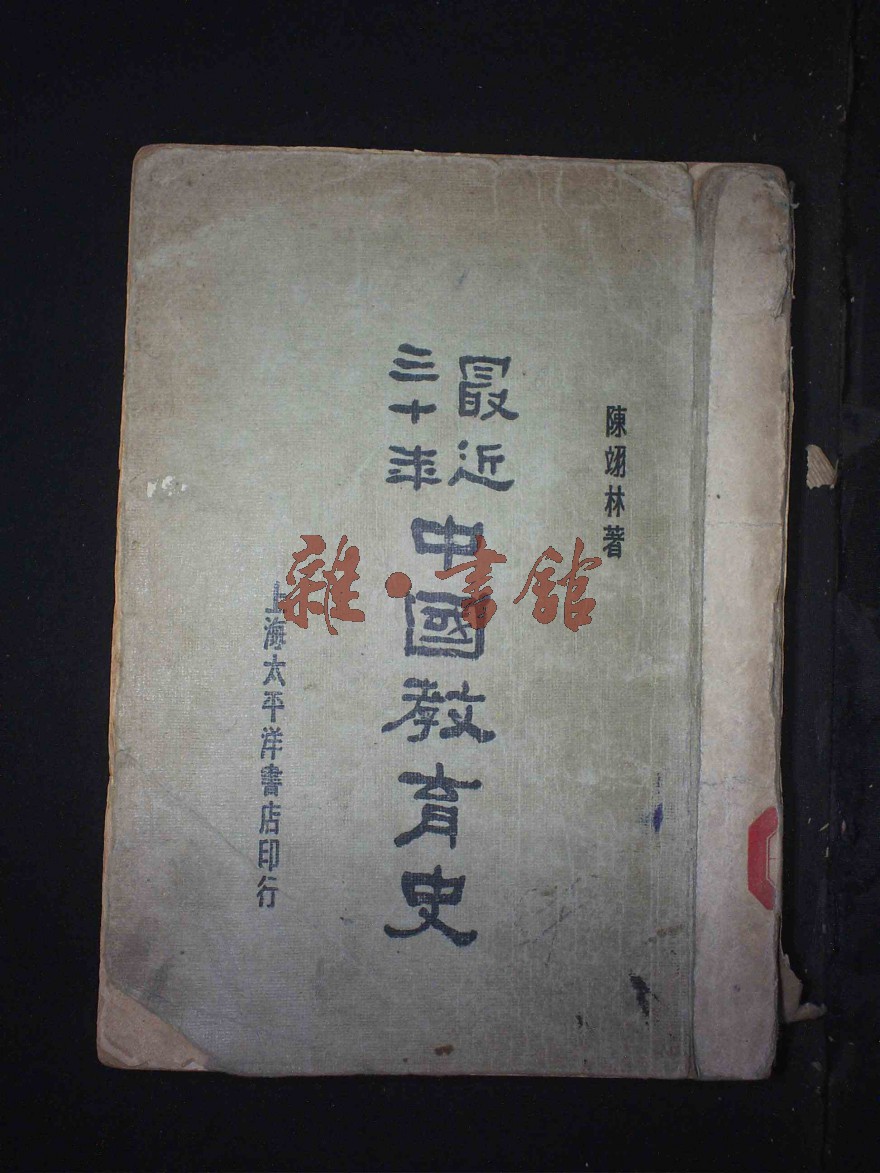 陳翊林著
最近
三十年
中國教育史
上海太平洋書店印行
雜·書館